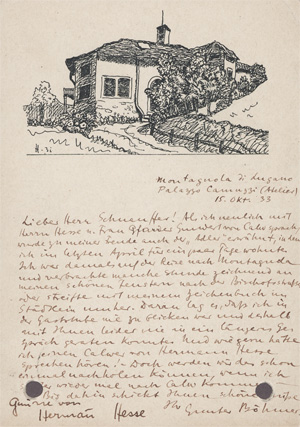 H. 31
Montagnola di Lugano
Palazzo Camuzzi (Atelier)
15. Okt. 33
Lieber Herr Schnauffer! Als ich neulich mit
Herrn Hesse u. Frau Gundert von Calw sprach,
wurde zu meiner Freude auch der "Adler" erwähnt, in dem
ich im letzten April für einige Tage wohnte.
Ich war damals auf der Reise nach Montagnola
und verbrachte manche Stunde zeichnend an
meinem schönen Fenster nach der Bischofstraße
oder streifte mit meinem Zeichenbuch im
Städtlein umher. Daran lag es, daß ich in
die Gaststube nie zu blicken war und deshalb
mit Ihnen leider nie in ein längeres Ge-
spräch geraten konnte. Und wie gern hätte
ich von Calw und Hermann Hesse
sprechen hören. Doch werden wir das schon
einmal nachholen können, wenn ich
wieder mal nach Calw komme.
Bis dahin schickt Ihnen schöne Grüße
Ihr Gunter Böhmer
Gruß von
Hermann Hesse